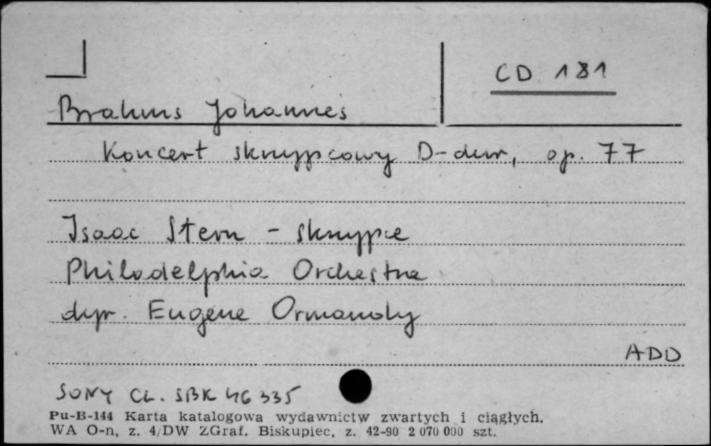 CD 181
Brahms Johannes
Koncert skrzypcowy D-dur, op. 77
Isaac Stern - skrzypce
Philadelphia Orchestra
dyr. Eugene Ormandy
ADD
SONY CL. SBK 46 335
Pu-B-144 Karta katalogowa wydawnictw zwartych i ciągłych.
WA O-n, z. 4/DW ZGraf. Biskupiec, z. 42-90 2 070 000 szt.